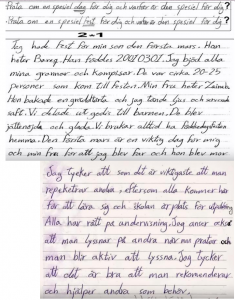 Prata om en speciel dag för dig och varför är den speciel för dig?
Prata om en speciel fest för dig och varför är den speciel för dig?
2-1
Jag hade fest för min son den första mars. Han
heter Barag. Han föddes 20010301. Jag bjöd alla
mina grannor och kompisar. De var cirka 20-25
personer som kom till festen. Min fru heter
Hon bakade en gräddtårta och jag tände ljus och
saft. Vi delade ut godis till barnen. De blev
jättenöjda och glada. Vi brukar alltid ha födelsedagsfesten
hemma. Den första mars är en viktig dag för mig
och min fru för att jag blev far och hon blev mor.
Jag tycker att som det är viktigaste att man
repekterar andra, eftersom alla kommer här
för att lära sig och skolan är plats för utbildning
Alla har rätt på undervisning. Jag anser också
att man lyssnar på andra när man pratar och
man blir aktiv att lyssna. Jag tycker
att det är bra att man rekomenderar
och hjälper andra som behöv.